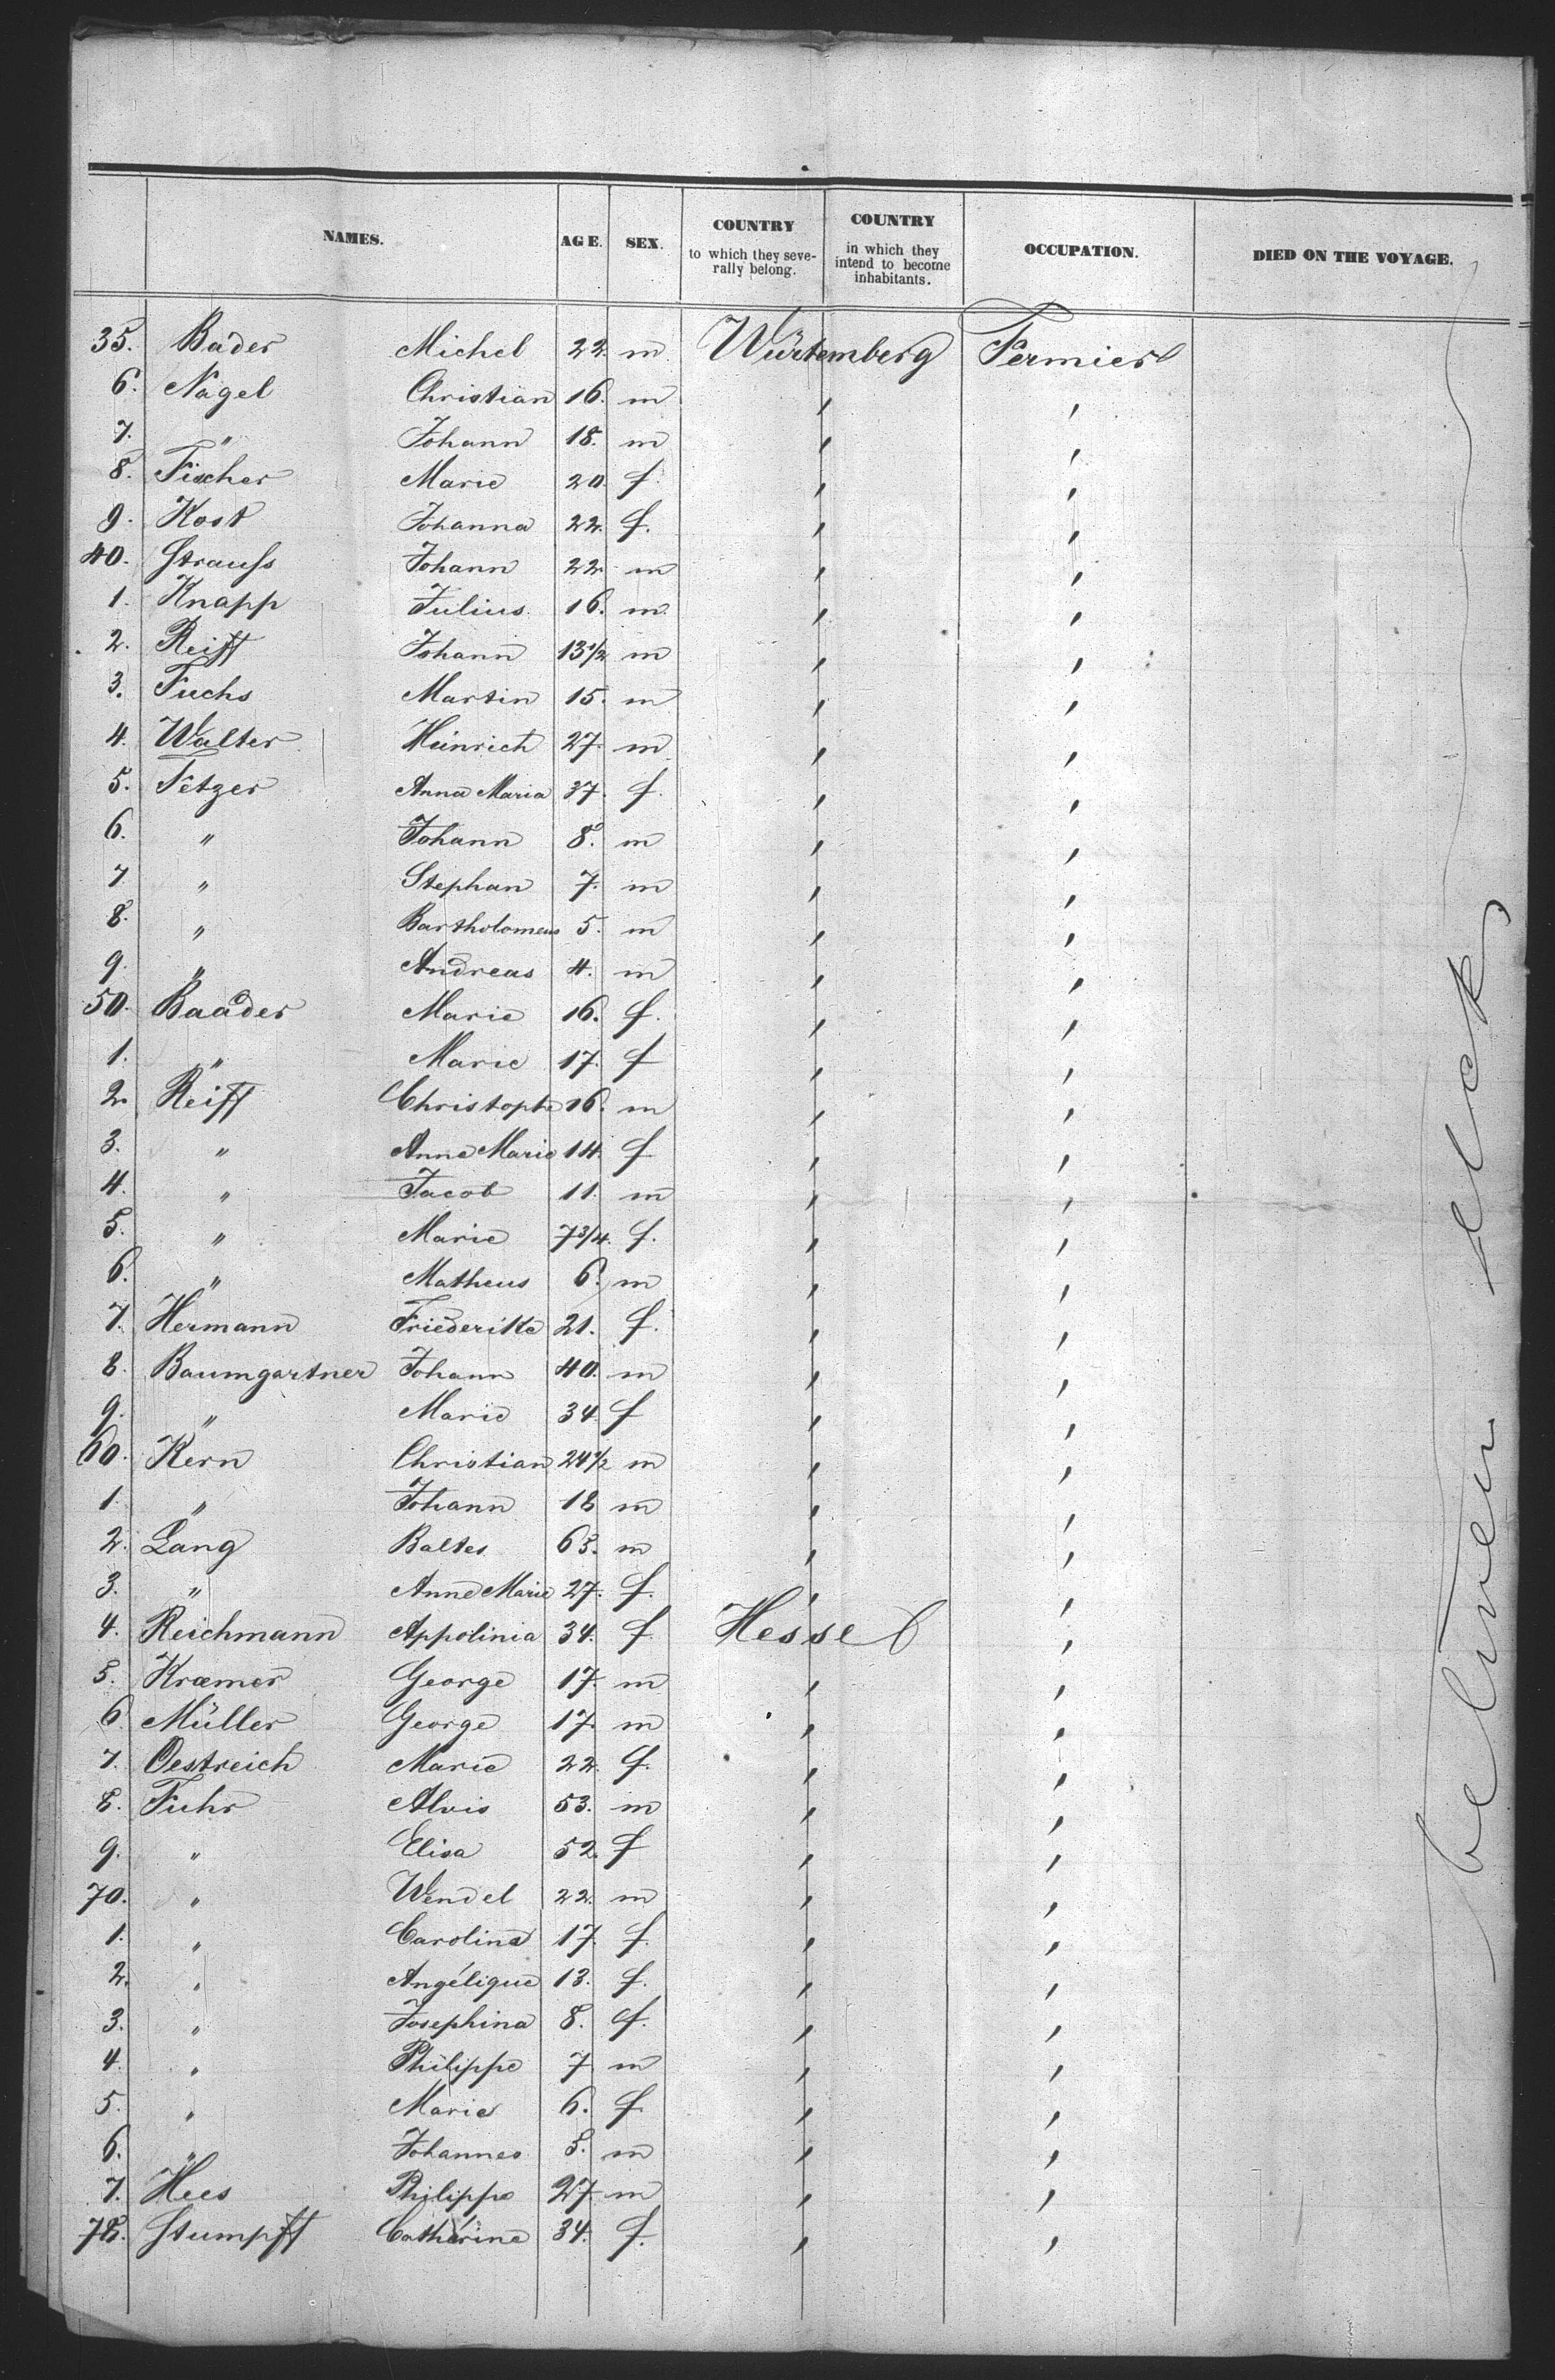 NAMES. AGE. SEX. COUNTRY to which they severally belong. COUNTRY in which they intend to become inhabitants. OCCUPATION. DIED ON THE VOYAGE.
35. Bader Michel 22. m. Würtemberg Fermier
6. Nagel Christian 16. m , ,
7. " Johann 18. m , ,
8. Fischer Marie 20. f. , ,
9. Kost Johanna 22. f. , ,
40. Strauss Johann 22. m , ,
1. Knapp Julius 16. m. , ,
2. Reiff Johann 13 1/2 m , ,
3. Fuchs Martin 15. m , ,
4. Walter Heinrich 27. m , ,
5. Fetzer Anna Maria 37. f. , ,
6. " Johann 8. m , ,
7 " Stephan 7. m , ,
8. " Bartholomeus 5. m , ,
9. " Andreas 4. m , ,
50. Baader Marie 16. f. , ,
1. " Marie 17. f , ,
2. Reiff Christoph 16. m , ,
3. " Anna Marie 14. f , ,
4. " Jacob 11. m , ,
5. " Marie 7 3/4. f. , ,
6. " Matheus 6. m , ,
7. Hermann Friederike 21. f. , ,
8. Baumgartner Johann 40. m , ,
9. " Marie 34. f , ,
60. Kern Christian 24 1/2 m , ,
1. " Johann 18 m , ,
2. Lang Baltes 63. m , ,
3. " Anne Marie 27. f. , ,
4. Reichmann Appolinia 34. f Hesse ,
5. Kræmer George 17. m , ,
6. Müller George 17. m , ,
7. Oestreich Marie 22. f. , ,
8. Fuhr Alois 53. m , ,
9. " Elisa 52. f , ,
70. " Wendel 22. m , ,
1. " Carolina 17. f. , ,
2. " Angélique 13. f. , ,
3. " Josephina 8. f. , ,
4. " Philippe 7 m , ,
5. " Marie 6. f. , ,
6. " Johannes 5. m , ,
7. Hees Philippe 27. m , ,
78. Stumpff Catherine 34. f. , ,
between deck